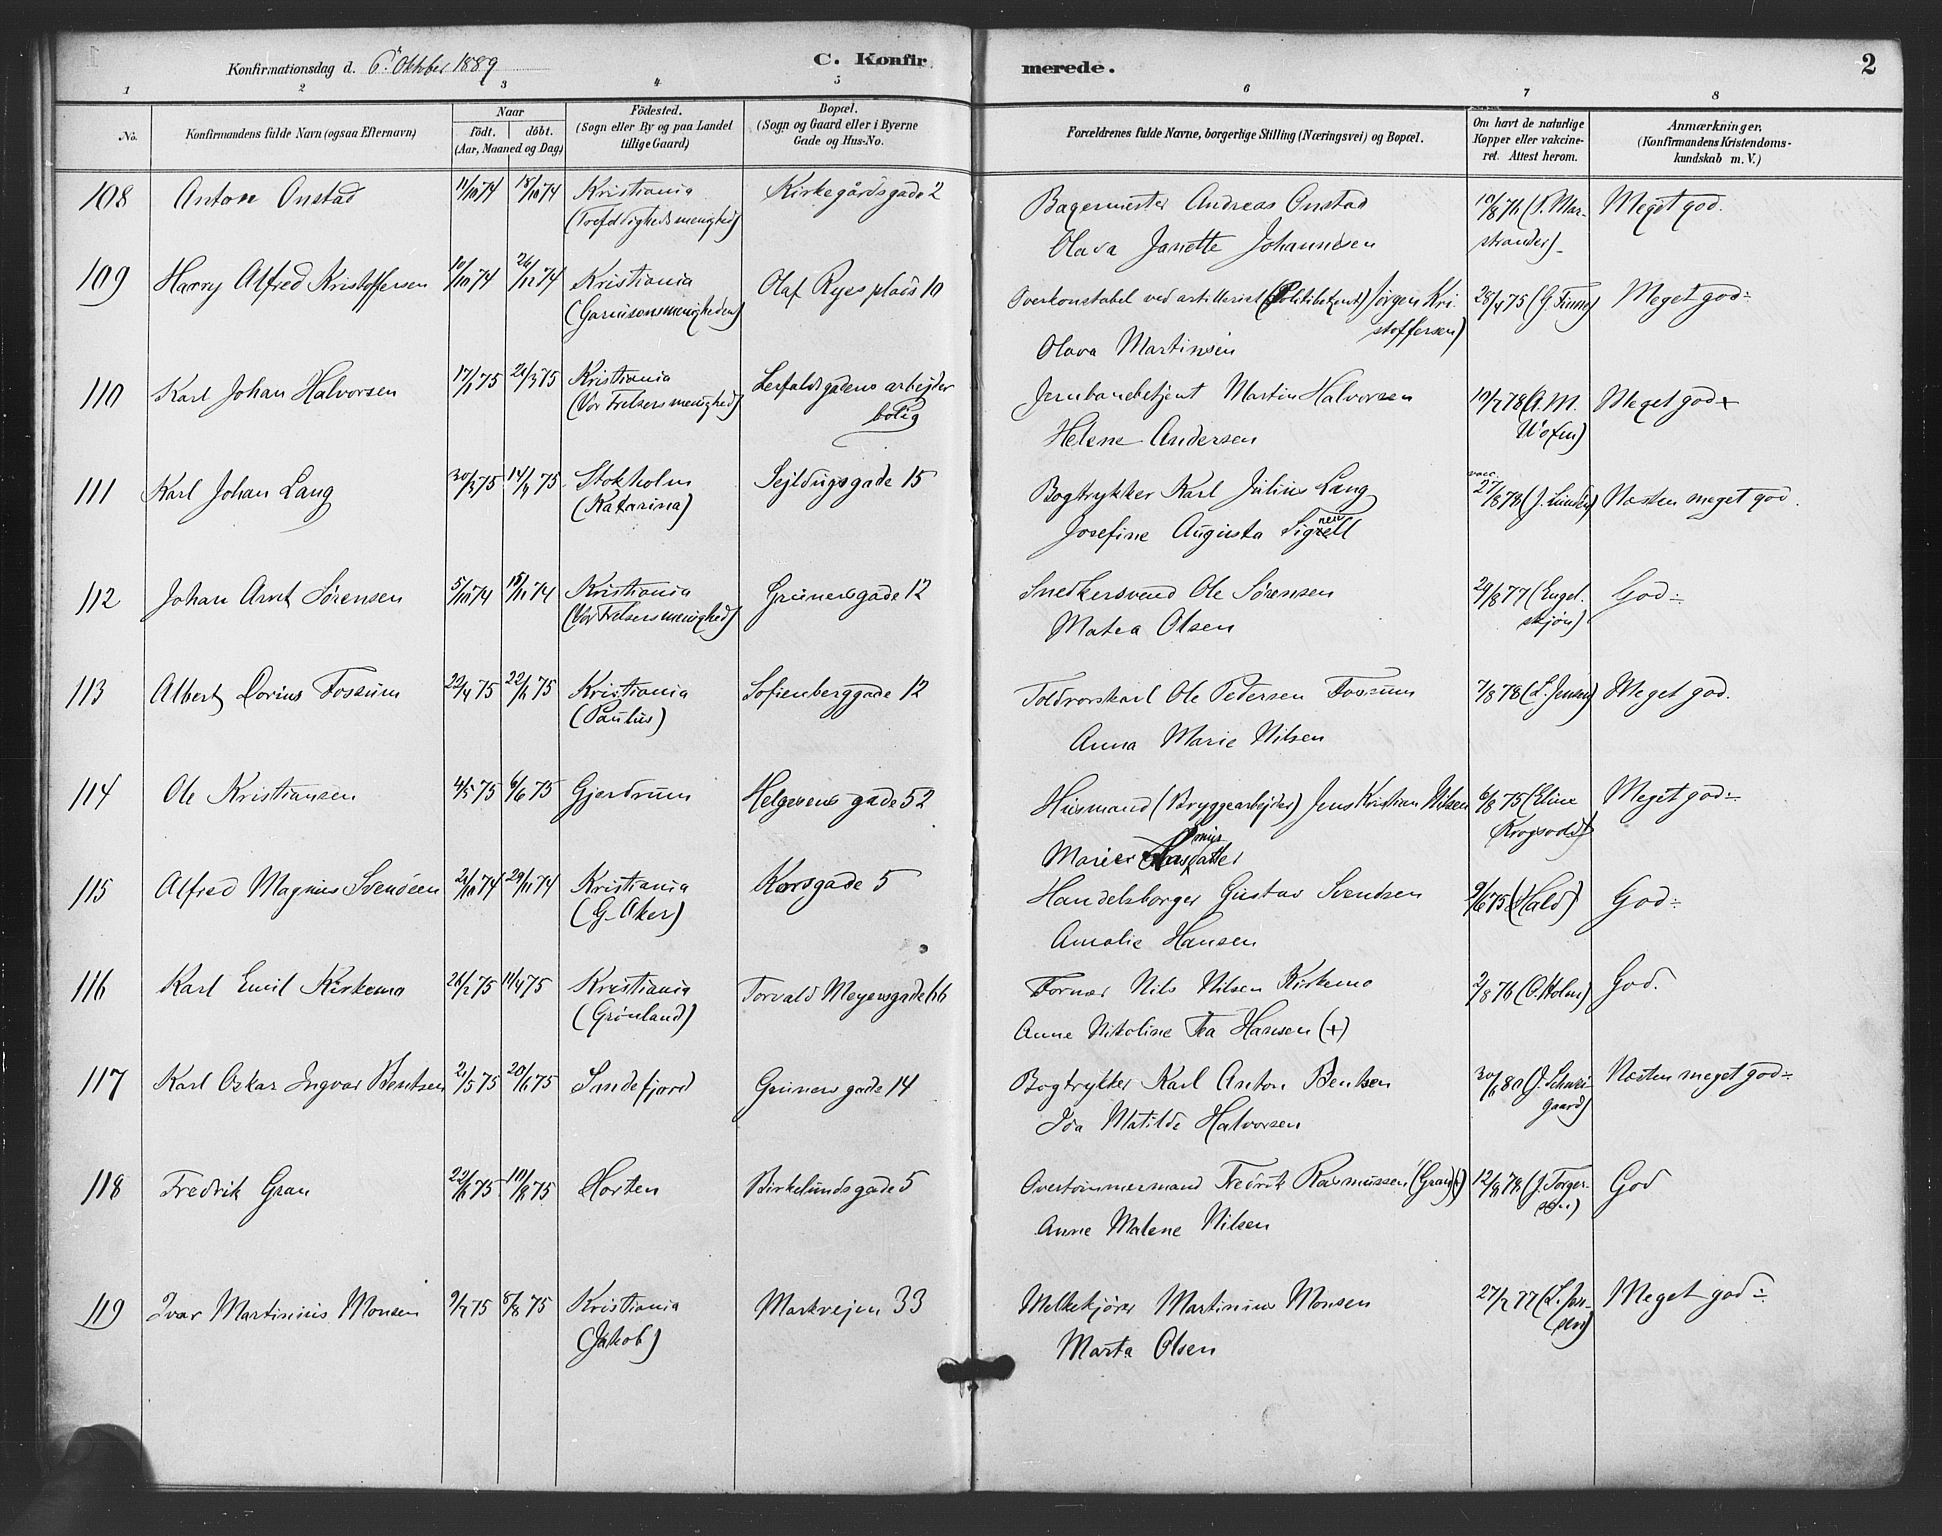 Konfirmationsdag d. 6. Oktober 1889
C. Konfirmerede.
2
1 2 3 4 5 6 7 8
No.
Konfirmandens fulde Navn (ogsaa Efternavn)
Naar
födt. döbt.
(Aar, Maaned og Dag)
Födested.
(Sogn eller By og paa Landet
tillige Gaard)
Bopæl.
(Sogn og Gaard eller i Byerne
Gade og Hus-No.
Forældrenes fulde Navne, borgerlige Stilling (Næringsvei) og Bopæl.
Om havt de naturlige
Kopper eller vakcineret. Attest herom.
Anmærkninger.
(Konfirmandens Kristendomskundskab m. V.)
108 Anton Onstad 11/10 74 18/10 74 Kristiania Kirkegårdsgade 2 Bagermester Andreas Onstad Meget god.
(Trefoldighedsmenighed) Olava Janette Johannesen
109 Harry Alfred Kristoffersen 10/10 74 26/12 74 Kristiania Olaf Ryes plads 10 Overkonstabel ved artilleriet (Politibetjent) Jørgen Kri
stoffersen) Meget god÷
(Garnisonsmenigheden) Olava Martinsen
110 Karl Johan Halvorsen 17/1 75 21/3 75 Kristiania arbejder Jernbanebetjent Martin Halvorsen Meget god+
(Vor Frelsers menighed) bolig Helene Andersen
111 Karl Johan Lang 30/3 75 14/4 75 Stokholm Sejldugsgade 15 Bogtrykker Karl Julius Lang Næsten meget god.
(Katarina) Josefine Augusta
112 Johan Arnt Sørensen 5/10 74 15/11 74 Kristiania Grünersgade 12 Snedkersvend Ole Sørensen 29/8 77 (Engel- God÷
(Vor Frelsersmenighed) Matea Olsen skjøn)
113 Albert Fossum 22/4 75 Kristiania Sofienberggade 12 Toldvorskarl Ole Pedersen Fossum 7/8 78 (L. Jensen) Meget god.
(Paulus) Anna Marie Nilsen
114 Ole Kristiansen 4/5 75 6/6 75 Gjerdrum Helgesens gade 52 Husmand (Bryggearbejder) Jens Kristian Nilsen 6/8 75 (Eline Meget god÷
Marie
115 Alfred Magnus Svendsen 29/11 74 Kristiania Korsgade 5 Handelsborger Gustav Svendsen 9/6 75 (Hald) God÷
(G. Aker) Amalie Hansen
116 Karl Emil Kirkemo 26/2 75 11/4 75 Kristiania Torvald Meyersgade 66 Former Nils Nilsen Kirkemo 2/8 76 (O. Holm) God.
(Grønland) Anne Nikoline Hansen (+)
117 Karl Oskar Ingvar Bentsen 2/5 75 20/6 75 Sandefjord Grüners gade 14 Bogtrykker Karl Anton Bentsen 30/6 80 (J. Schwei- Næsten meget god÷
Ida Matilde Halvorsen gaard)
118 Fredrik Gran 22/6 75 Horten Birkelundsgade 5 Overtømmermand Fredrik Rasmussen (Gran) (+) (J. Torger- God
Anne Malene Nilsen sen)
119 Ivar Martinius Monsen 9/7 75 8/8 75 Kristiania Markvejen 33 Melkekjører Martinius Monsen 27/7 77 (L. Jen- Meget god÷
(Jakob) Marta Olsen sen)